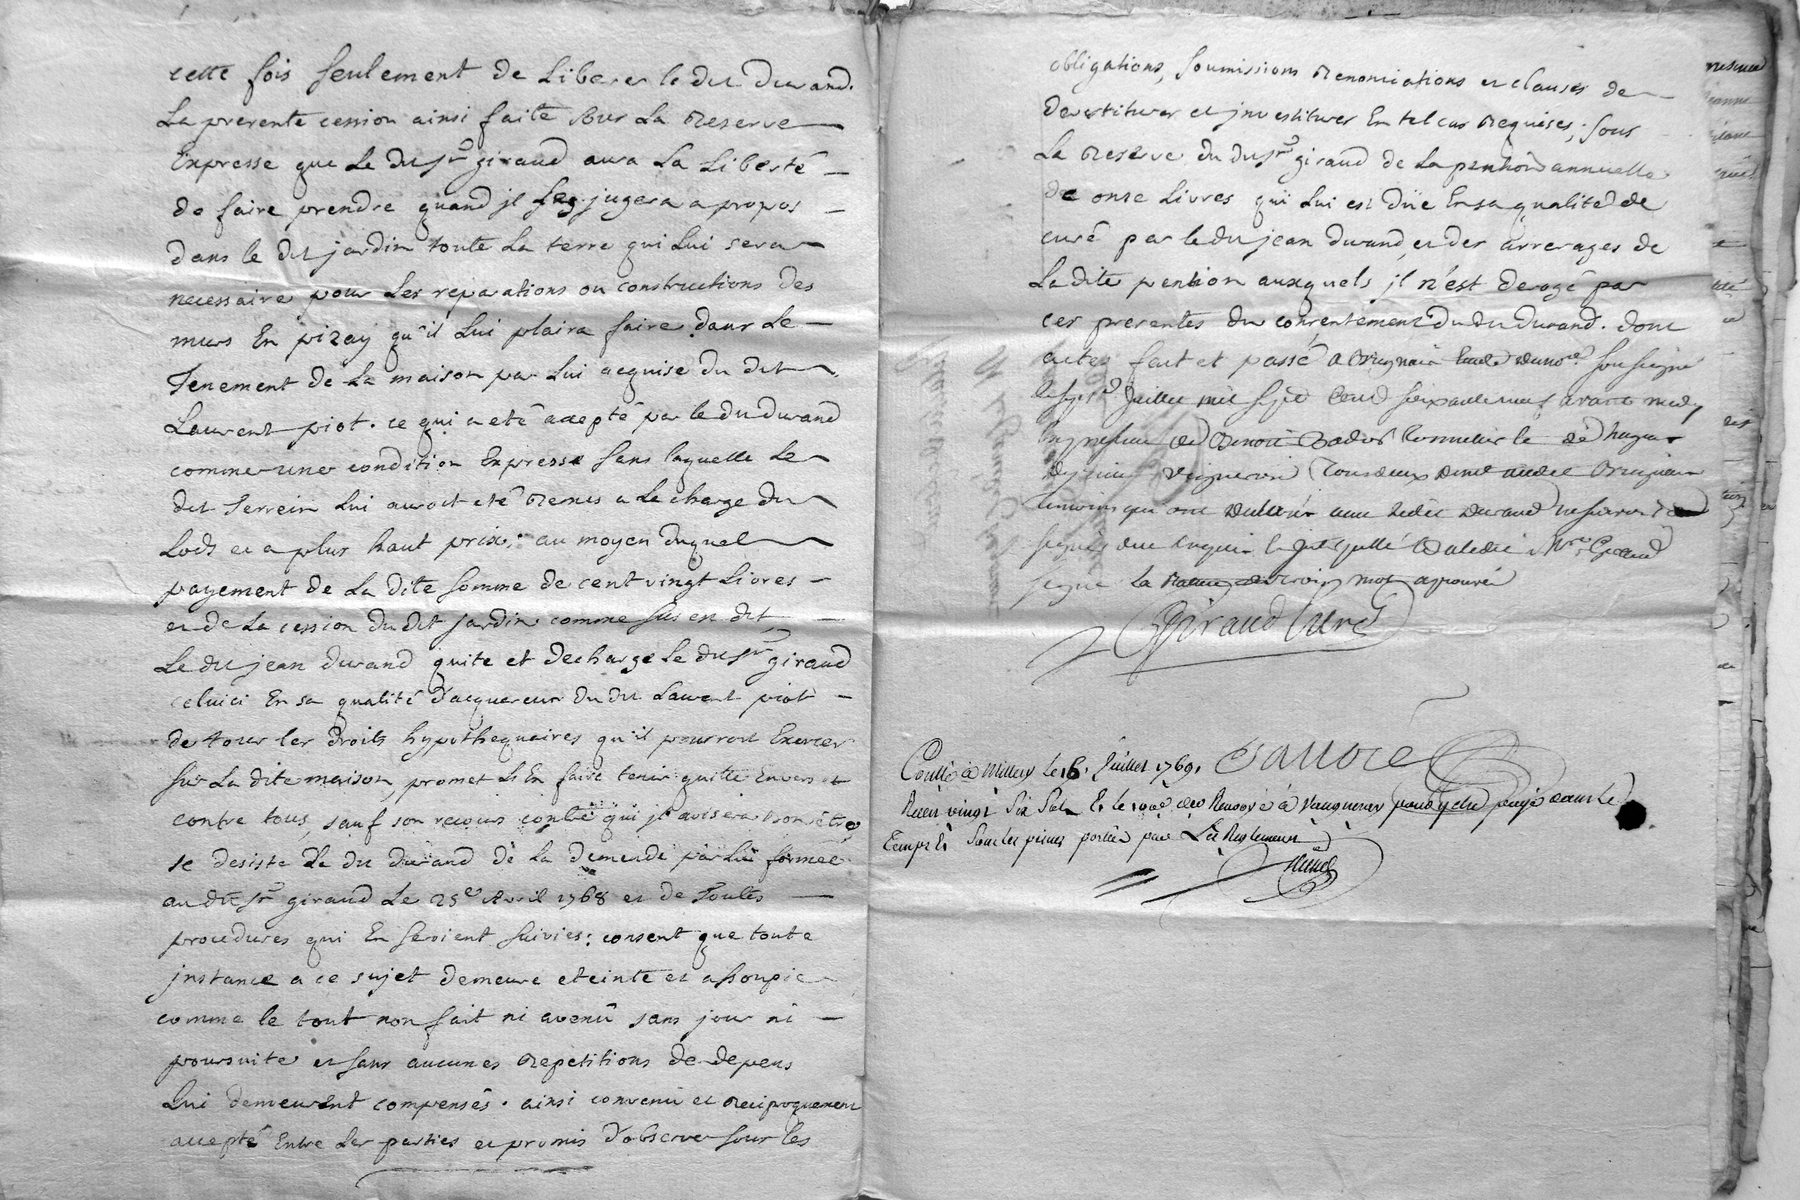 cette fois seulement de Liberer le dit durand.
La presente cession ainsi faite sur La Reserve
Expresse que Le dit Sr giraud aura La Liberté
de faire prendre quand jl le jugera a propos
dans le dit jardin toute La terre qui Lui sera
necessaire pour Les reparations ou constructions des
murs En pizay qu'il Lui plaira faire dans Le
Tenement de La maison par Lui acquise du dit
Laurent piot. ce qui a eté accepté par le dit durand
comme une condition Expresse sans laquelle Le
dit Terrein Lui auroit eté Remis a La charge du
Lods et a plus haut prix. au moyen duquel
payement de La dite somme de cent vingt Livres
et de La cession du dit jardin comme sus est dit
Le dit jean durand quite et decharge Le dit Sr giraud
celuici En sa qualité d'acquereur du dit Laurent piot
de tous les droits hypothequaires qu'il pourroit Exercer
sur La dite maison, promet L'En faire tenir quitte Envers et
contre tous, sauf son recours contre qui jl avisera bon etre
se desiste Le dit durand de La demande par Lui formée
au dit Sr giraud Le 25e Avril 1768 et de Toutes
procedures qui En seroient suivies; consent que toute
jnstance a ce sujet demeure eteinte et assoupie
comme le tout non fait ni avenû sans jour ni
poursuite et sans aucunes Repetitions de depens
qui demeurent compensés. ainsi convenu et Reciproquement
accepté Entre Les parties et promis d'observer sous les
obligations, soumissions Renonciations et clauses de
devestiture et jnvestiture En tel cas Requises; sous
La Reserve du dit Sr giraud de La penhion annuelle
de onse Livres qui Lui est düe En sa qualité de
curé par le dit jean durand, et des arrerages de
La dite pention auxquels jl n'est derogé par
ces presentes du consentement du dit durand. dont
actes fait et passé a Brignais Etude du nore soussigné
le Juillet mil sept Cent soixante neuf avant midy
En presence de Benoit le de
vigneron Tous deux dud
temoins qui ont avec ledit durand ne sçavoir
signer de ce enquis Mre Giraud
signé La trois mot aprouvé
Giraud Curé
Conllé a Millery le 16. Juillet 1769.
Recu vingt Six Sols Et le a Vaugneray dans le
Temps & Sous les peines portées par Les Reglements